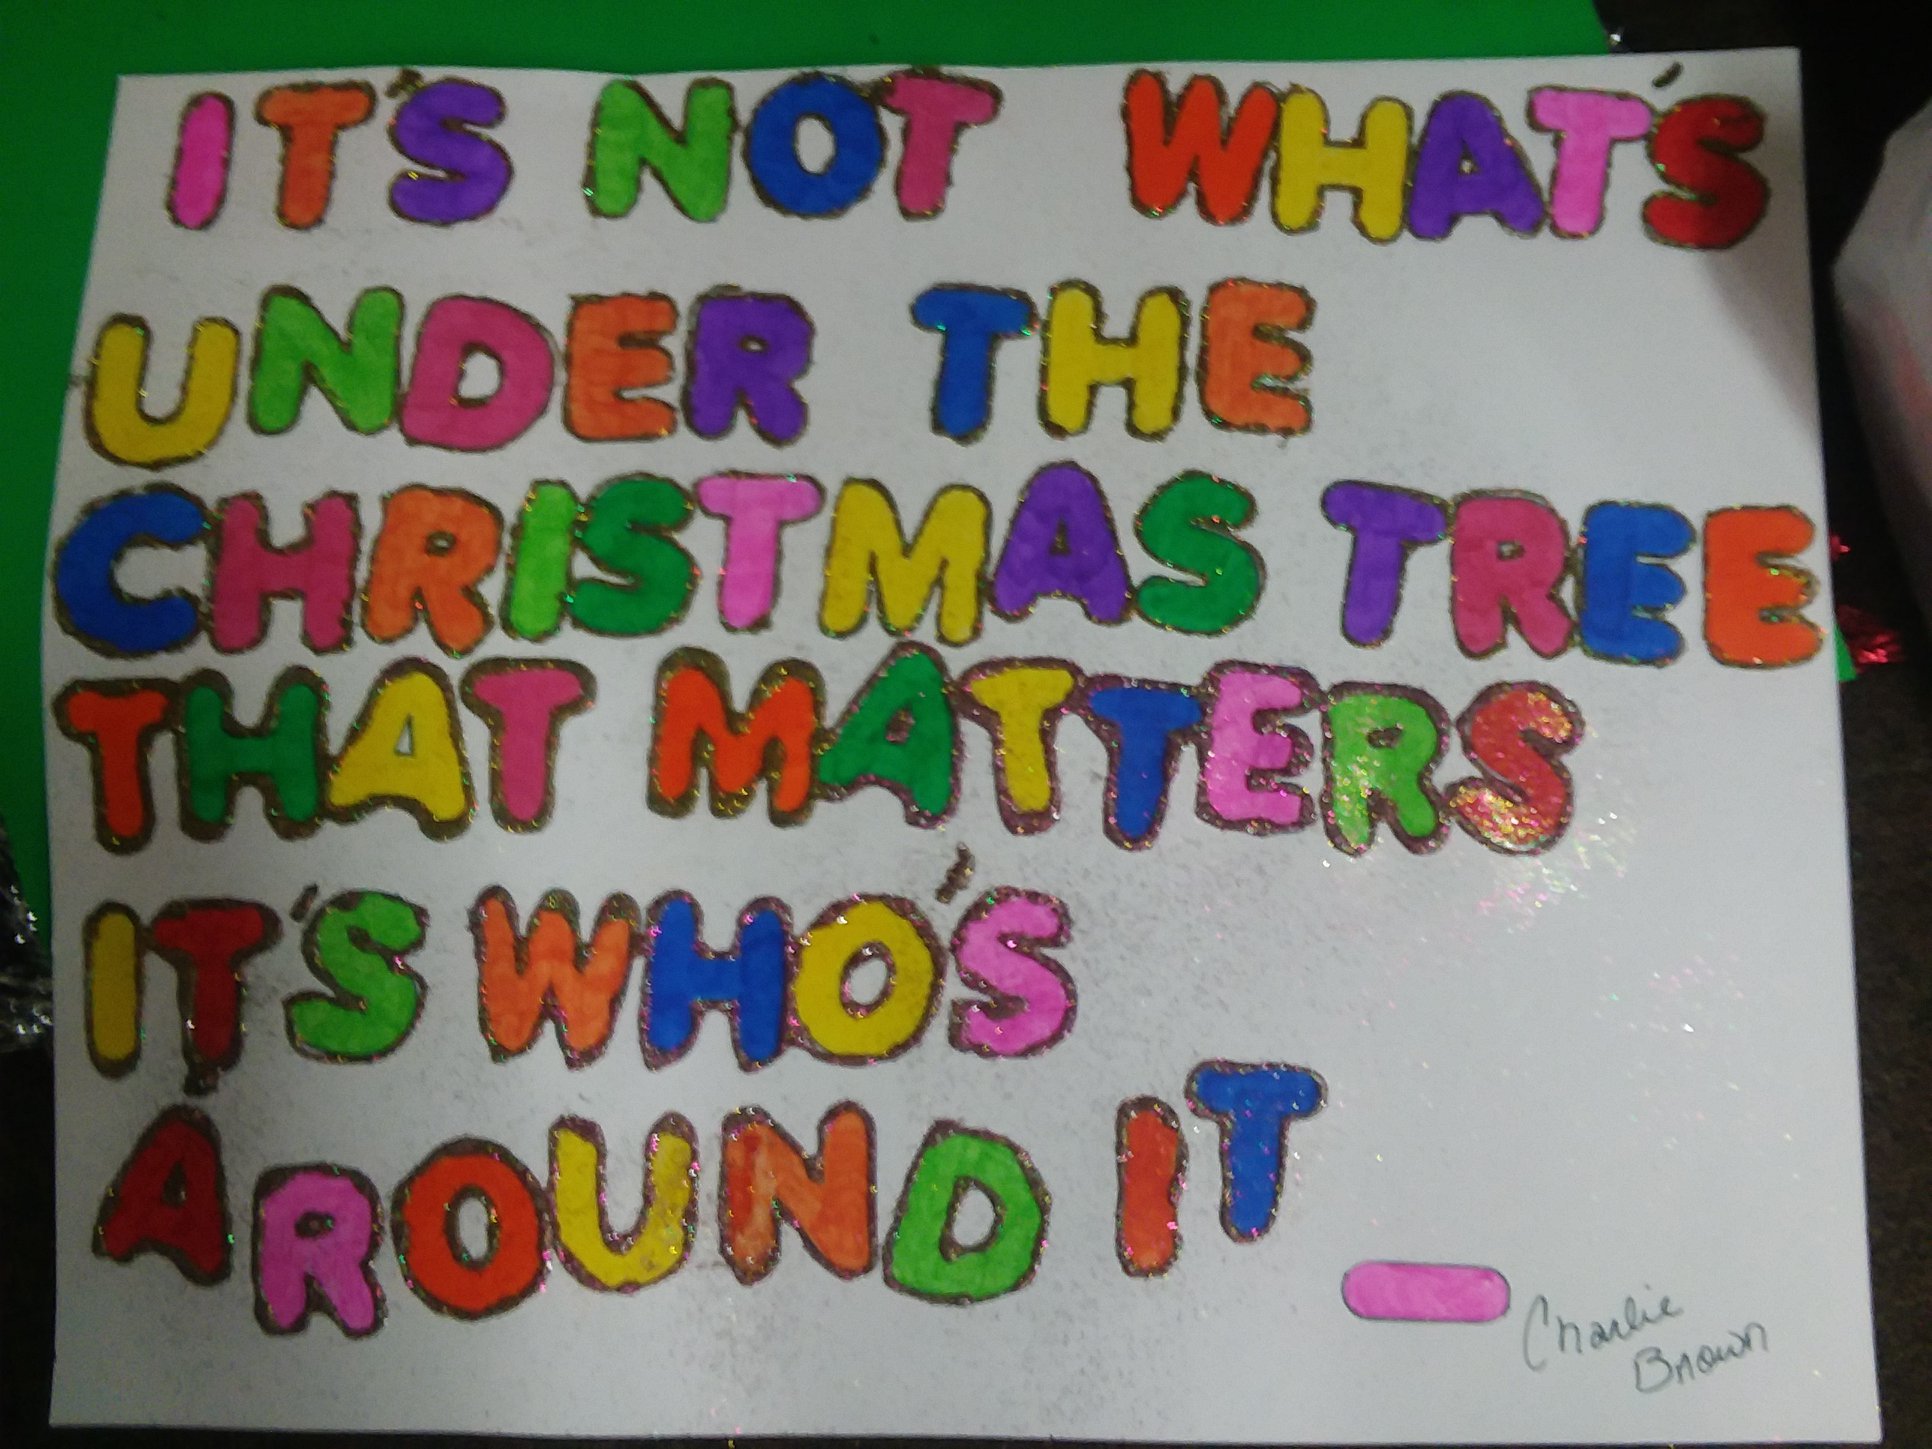 IT'S NOT WHAT'S
UNDER THE
CHRISTMAS TREE
THAT MATTERS
IT'S WHO'S
AROUND IT
— Charlie
Brown